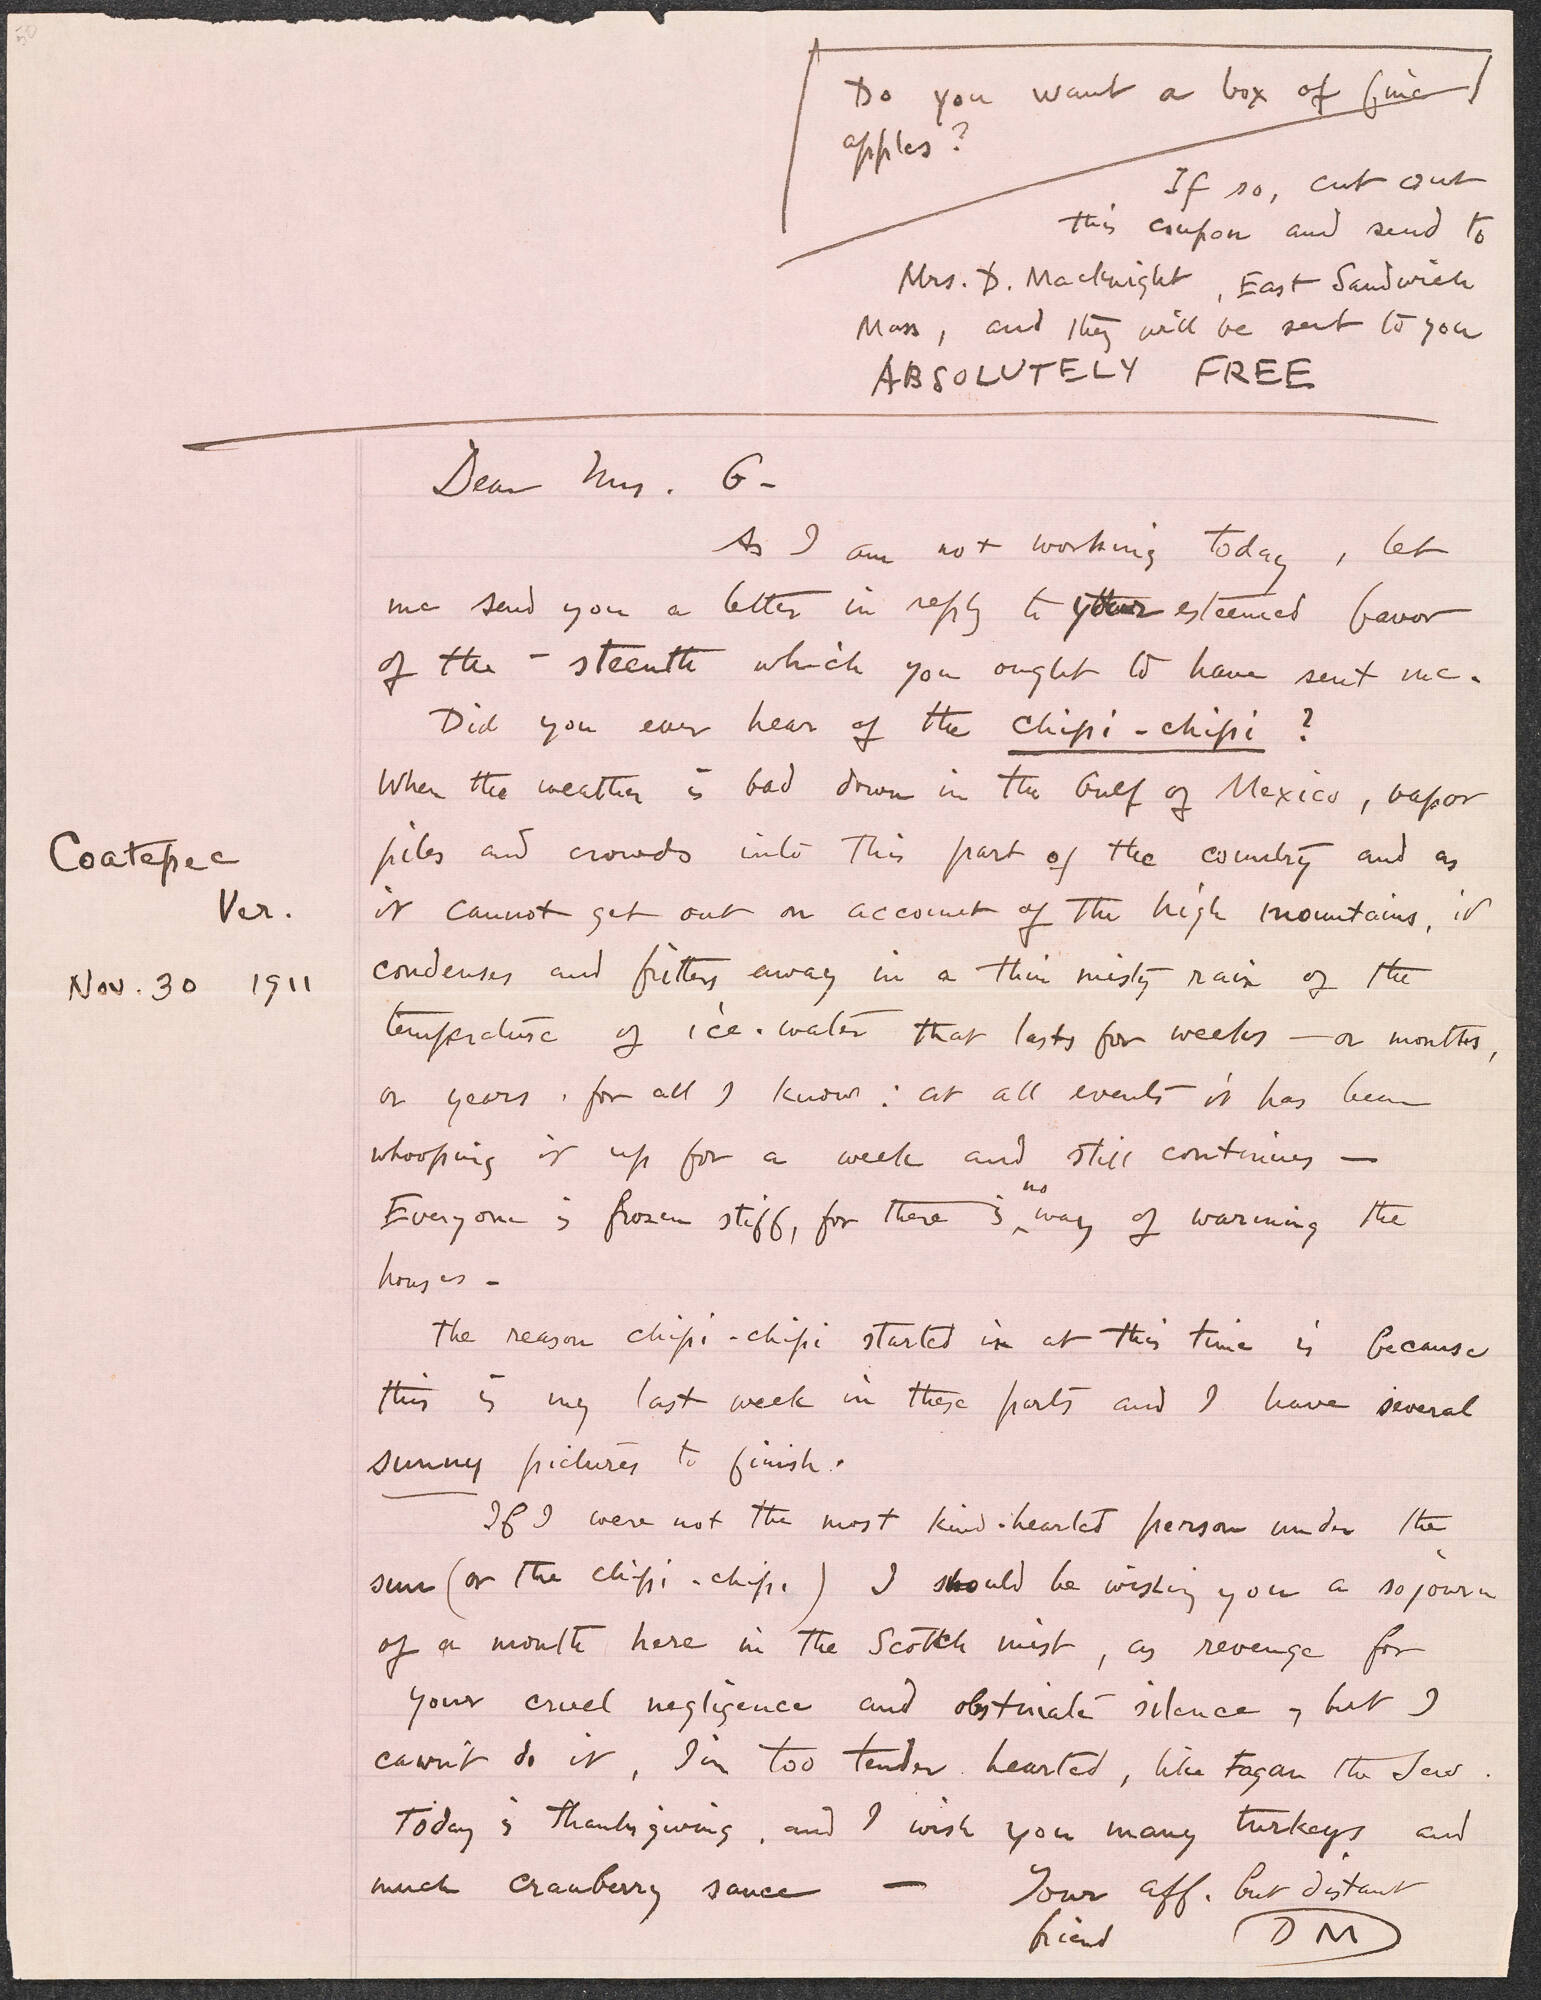 Do you want a box of fine
apples?
If so, cut out
this coupon and send to
Mrs. D. Macknight, East Sandwich
Mass, and they will be sent to you
ABSOLUTELY FREE
Dear Mrs. G-
As I am not working today, let
me send you a letter in reply to your esteemed favor
of the - steenth which you ought to have sent me.
Did you ever hear of the chipi-chipi?
When the weather is bad down in the Gulf of Mexico, vapor
piles and crowds into this part of the country and as
it cannot get out on account of the high mountains, it
condenses and fritters away in a thin misty rain of the
temperature of ice-water that lasts for weeks - or months,
or years, for all I know: at all events it has been
whooping it up for a week and still continues -
Everyone is frozen stiff, for there is no way of warming the
houses -
Coatepec
Ver.
Nov. 30 1911
The reason chipi-chipi started in at this time is because
this is my last week in these parts and I have several
sunny pictures to finish.
If I were not the most kind-hearted person under the
sun (or the chipi-chipi) I should be wishing you a sojourn
of a month here in the Scotch mist, as revenge for
your cruel negligence and obstinate silence, but I
cawn't do it, I'm too tender hearted, like Fagan the Jew.
Today is Thanksgiving, and I wish you many turkeys and
much cranberry sauce - Your aff. but distant
friend DM